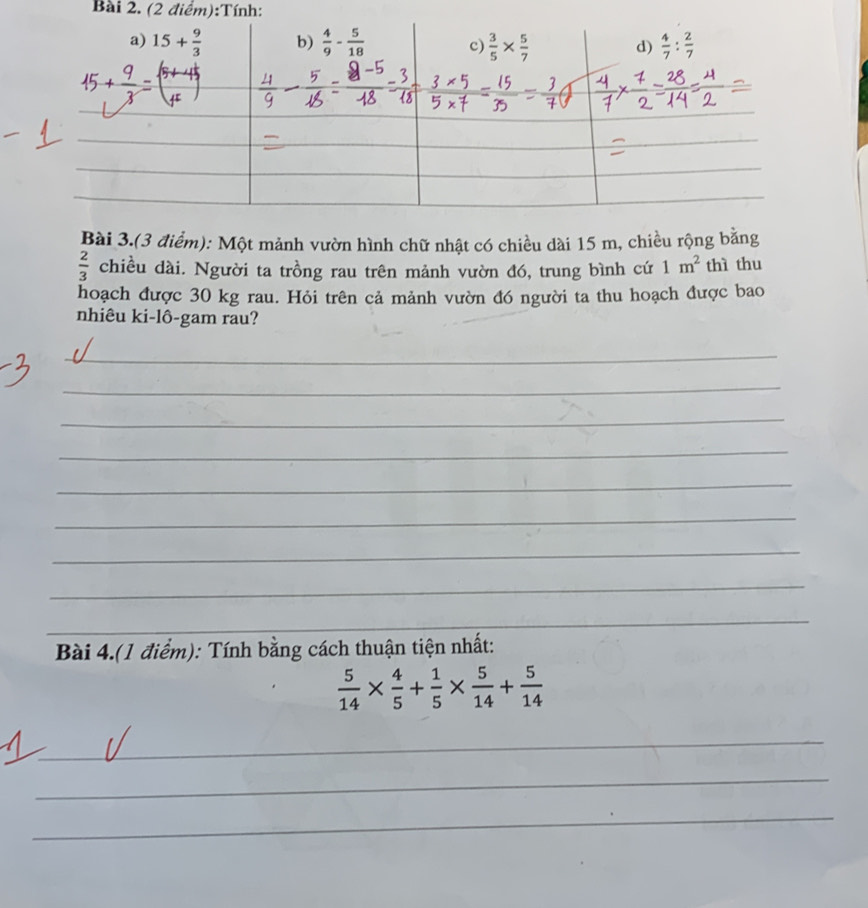 Bài 2. (2 điểm):Tính:
a) 15 + 9/3 b) 4/9 - 5/18 c) 3/5 × 5/7 d) 4/7 : 2/7
15 + 9/3 = 4/9 - 5/18 = 8-5/18 = 3/18 3×5/5×7 = 15/35 = 3/7 4/7 × 7/2 = 28/14 = 4/2 =
- 1 = =
Bài 3.(3 điểm): Một mảnh vườn hình chữ nhật có chiều dài 15 m, chiều rộng bằng
2/3 chiều dài. Người ta trồng rau trên mảnh vườn đó, trung bình cứ 1 m² thì thu
hoạch được 30 kg rau. Hỏi trên cả mảnh vườn đó người ta thu hoạch được bao
nhiêu ki-lô-gam rau?
-3
Bài 4.(1 điểm): Tính bằng cách thuận tiện nhất:
5/14 × 4/5 + 1/5 × 5/14 + 5/14
1